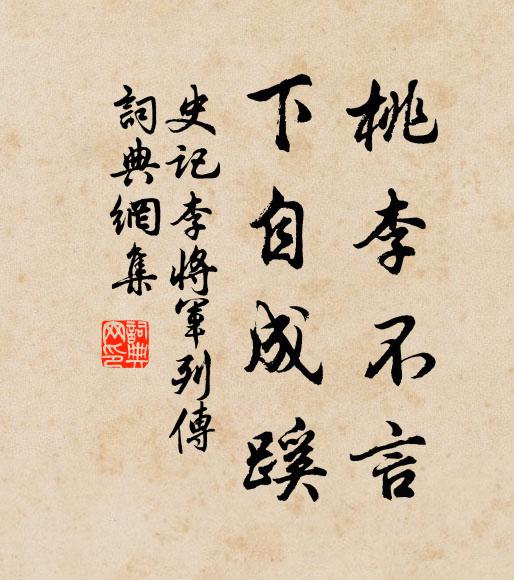 桃李不言
下自成蹊
史記李將軍列傳
詞典網集
詞典網印